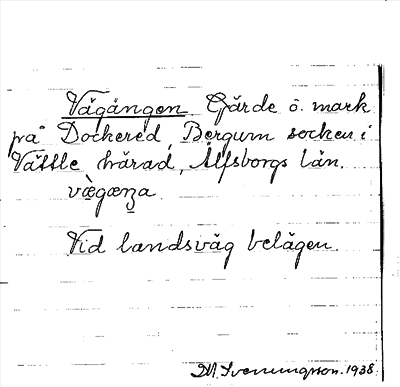 Vägången Gärde o. mark
på Dockered, Bergum socken i
Vättle härad, Älfsborgs län.
væ̀gæŋa.
Vid landsväg belägen.
M. Svenungsson. 1938.